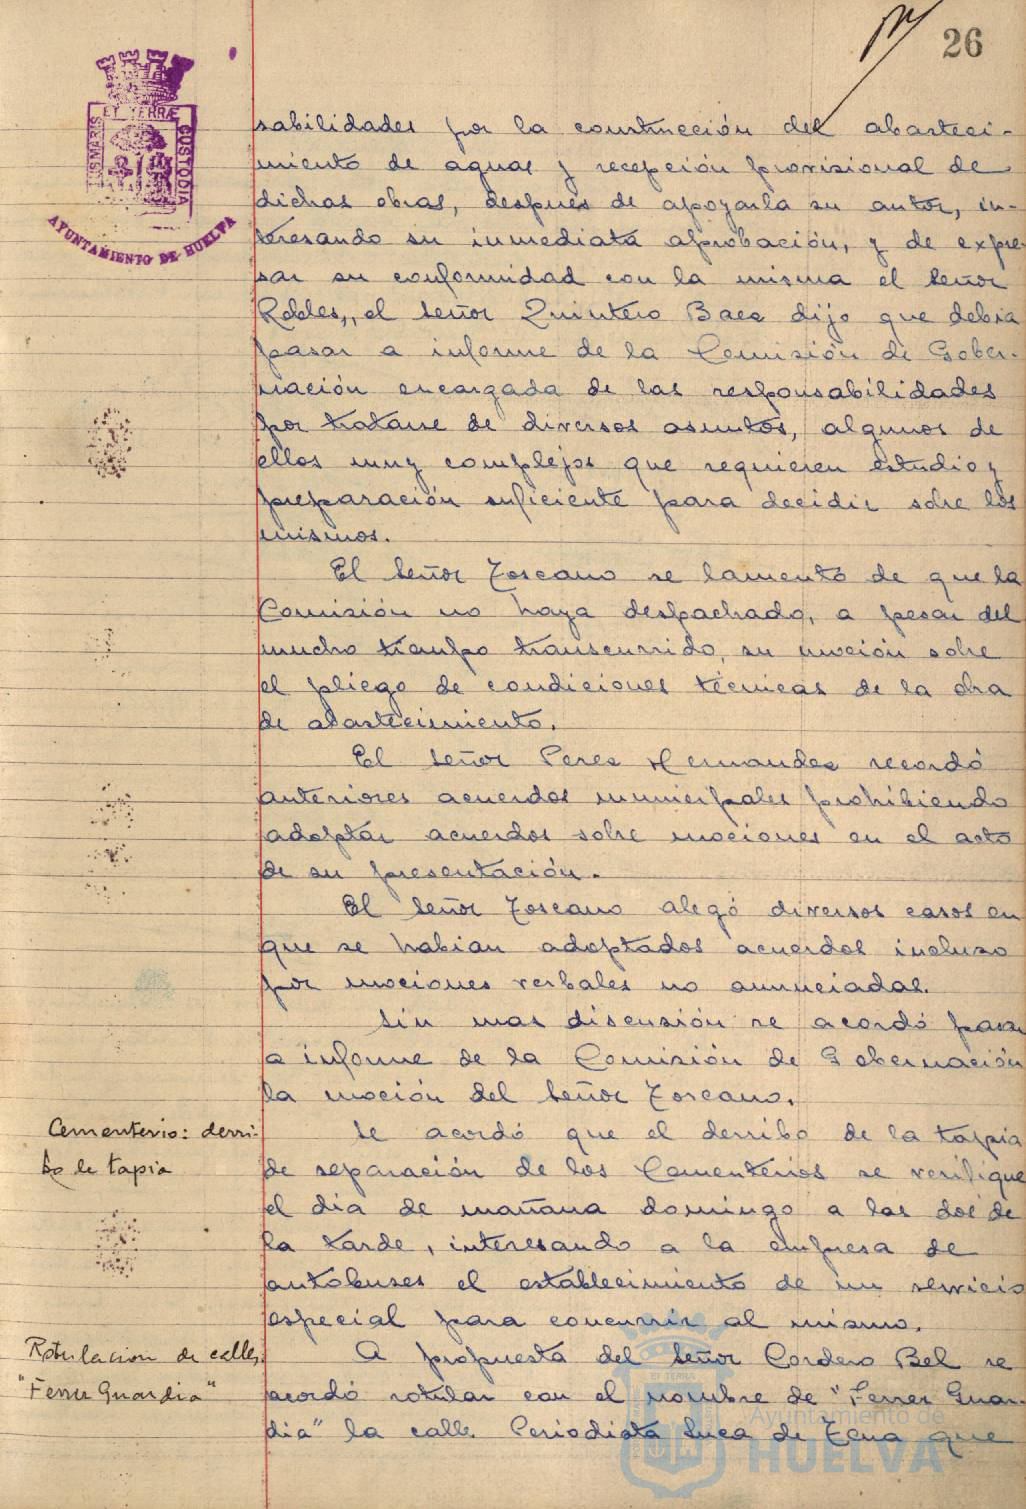 26
ET TERRÆ
CUSTODIA
AYUNTAMIENTO DE HUELVA
sabilidades por la construcción del abasteci-
miento de aguas y recepción provisional de
dichas obras, después de apoyarla su autor, in-
teresando su inmediata aprobación, y de expre-
sar su conformidad con la misma el Señor
Robles, el Señor Quintero Baez dijo que debia
pasar a informe de la Comisión de Gober-
nación encargada de las responsabilidades
por tratarse de diversos asuntos, algunos de
ellos muy complejos que requieren estudio y
preparación suficiente para decidir sobre los
mismos.
El Señor Toscano se lamentó de que la
Comisión no haya despachado, a pesar del
mucho tiempo transcurrido, su moción sobre
el pliego de condiciones técnicas de la obra
de abastecimiento.
El Señor Perez Hernandez recordó
anteriores acuerdos municipales prohibiendo
adoptar acuerdos sobre mociones en el acto
de su presentación.
El Señor Toscano alegó diversos casos en
que se habian adoptados acuerdos incluso
por mociones verbales no anunciadas.
Sin mas discusión se acordó pasar
a informe de la Comisión de Gobernación
la moción del Señor Toscano.
Cementerio: derri-
bo de tapia
Se acordó que el derribo de la tapia
de separación de los Cementerios se verifique
el dia de mañana domingo a las dos de
la tarde, interesando a la empresa de
autobuses el establecimiento de un servicio
especial para concurrir al mismo.
Rotulacion de calles
"Ferrer Guardia"
A propuesta del Señor Cordero Bel se
acordó rotular con el nombre de "Ferrer Guar-
dia" la calle Periodista Luca de Tena que
Ayuntamiento de
HUELVA